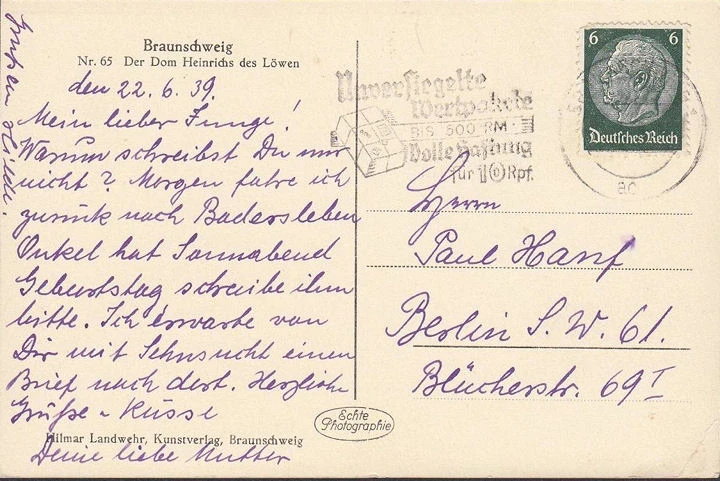 Braunschweig
Nr. 65 Der Dom Heinrichs des Löwen
den 22. 6. 39.
Mein lieber Junge!
Warum schreibst Du mir
nicht? Morgen fahre ich
zurück nach Badersleben
Onkel hat Sonnabend
Geburtstag schreibe ihm
bitte. Ich erwarte von
Dir mit Sehnsucht einen
Brief nach dort. Herzliche
Grüße u Küsse
Hilmar Landwehr, Kunstverlag, Braunschweig
Deine liebe Mutter
Echte
Photographie
Unversiegelte
Wertpakete
BIS 500 RM
Volle Haftung
für 10 Rpf.
6 6
Deutsches Reich
Herrn
Paul Hanf
Berlin S. W. 61.
Blücherstr. 69 I